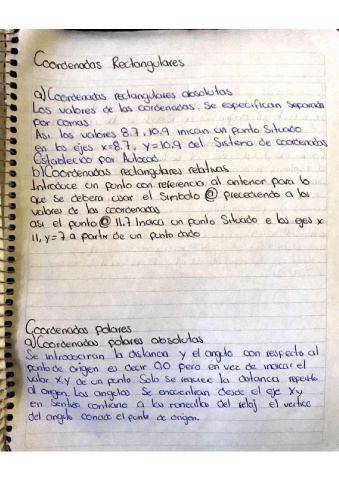 Coordenadas Rectangulares
a) Coordenadas rectangulares absolutas
Los valores de las cordenadas. Se especifican Separada
por comas.
Asi los valores 8.7, 10.9 inican un punto Situado
en los ejes x=8.7, y=10.9 del Sistema de coordenadas
Establecido por Autocad.
b) Coordenadas rectangulares relativas
Introduce un punto con referencia al anterior para lo
que Se debera usar el Simbolo @ precediendo a los
valores de las coordenadas
asi el punto @ 11.7 Inaica un punto Situado e los ejes x
11, y=7 a partir de un punto dado
Coordenadas polares
a) Coordenadas polares absolutas
Se introduciran la distancia y el angulo con respecto al
punto de origen es decir 0,0 pero en vez de inaicar el
valor X,Y de un punto Solo se requiere la distanca respecto
al origen, Los angulos Se encuentran desde el eje Xy
en Sentido contrario a las manecillas del reloj el vertice
del angulo donde el punto de origen.